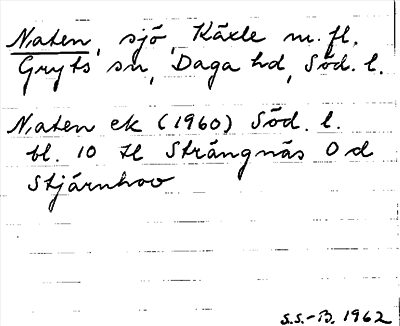 Naten, sjö, Käxle m. fl.
Gryts sn, Daga hd, Söd. l.
Naten ek (1960) Söd. l.
bl. 10 H Strängnäs O d
Stjärnhov
S.S.-B. 1962